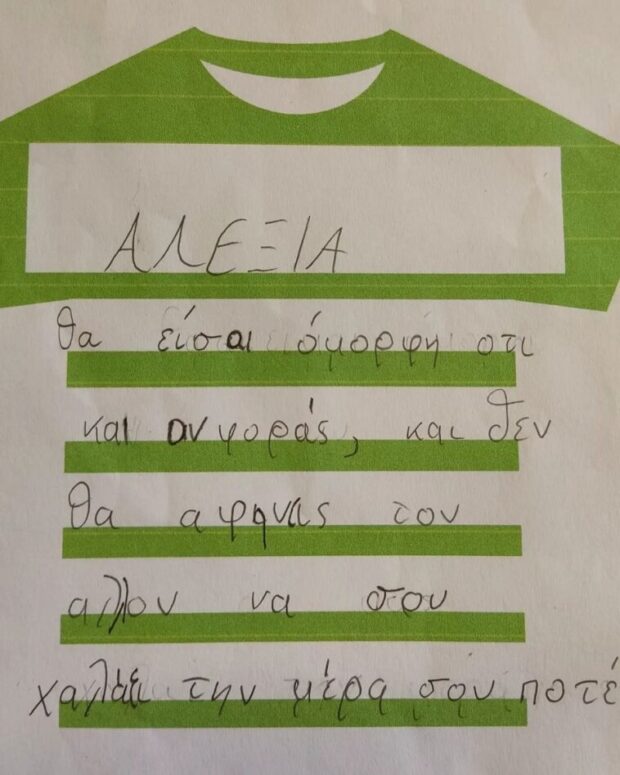 ΑΛΕΞΙΑ
θα είσαι όμορφη οτι
και αν φοράς, και θεν
θα αφηνάς τον
αλλον να σου
χαλάει την μέρα σου ποτέ